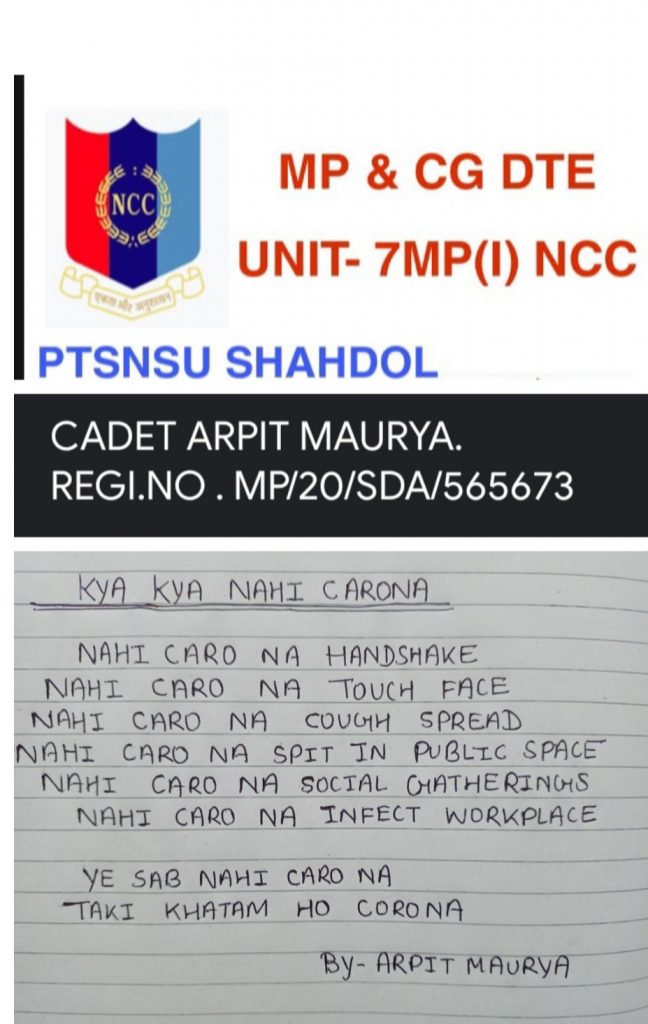 NCC
एकता और अनुशासन
MP & CG DTE
UNIT- 7MP(I) NCC
PTSNSU SHAHDOL
CADET ARPIT MAURYA.
REGI.NO . MP/20/SDA/565673
KYA KYA NAHI CARONA
NAHI CARO NA HANDSHAKE
NAHI CARO NA TOUCH FACE
NAHI CARO NA COUGH SPREAD
NAHI CARO NA SPIT IN PUBLIC SPACE
NAHI CARO NA SOCIAL GATHERINGS
NAHI CARO NA INFECT WORKPLACE
YE SAB NAHI CARO NA
TAKI KHATAM HO CORONA
By- ARPIT MAURYA